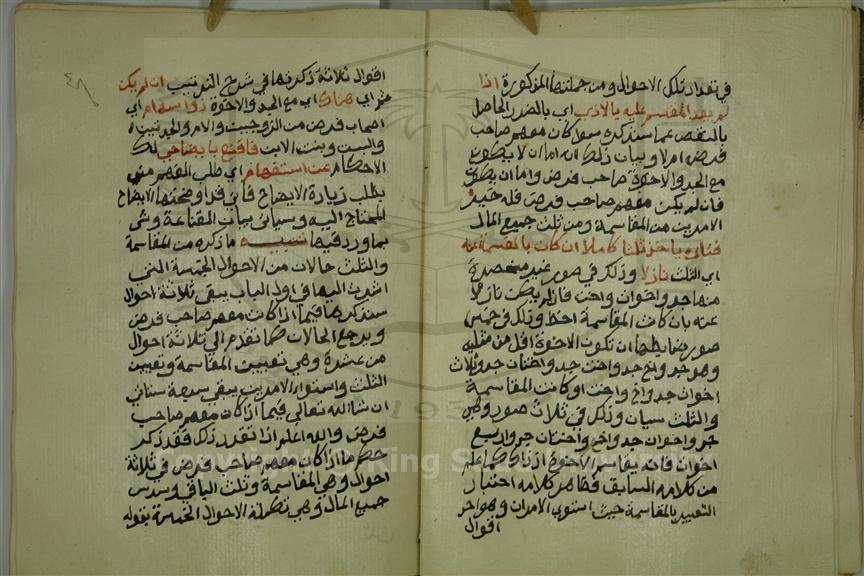 في تعداد تلك الاحوال ومن جملتها المذكورة اذا
لم يعد القسم عليه بالاذى اي بالضرر الحاصل
بالنقص عما سنذكره سوا كان معهم صاحب
فرض ام لا وبيان ذلك انه اما ان لا يكون
مع الجد والاخوة صاحب فرض واما ان يكون
فان لم يكن معهم صاحب فرض فله خير
الامرين من المقاسمة ومن ثلث جميع المال
فتارة ياخذ ثلثا كاملا ان كان بالقسمة عنه
اي الثلث نازلا وذلك في صور غير منحصرة
منها جد واخوان واخت فان لم يكن نازلا
عنه بان كانت المقاسمة احظ وذلك في خمس
صور ضابطها ان تكون الاخوة اقل من مثليه
وهو جد واخ جد واخت جد واختان جد وثلاث
اخوات جد واخ واخت او كانت المقاسمة
والثلث سيان وذلك في ثلاث صور وهي
جد واخوان جد واخ واختان جد واربع
اخوات فانه يقاسم الاخوة اذا كما علم
من كلامه السابق فظاهر كلامه اختيار
التعبير بالمقاسمة حيث استوى الامران وهو احد
اقوال
٤٨
اقوال ثلاثة ذكرتها في شرح الترتيب ان لم يكن
ثم اي هناك اي مع الجد والاخوة ذوا سهام اي
اصحاب فرض من الزوجين والام والجدتين
والبنت وبنت الابن فاقنع بايضاحي لك
الاحكام عن استفهام اي طلب الفهم مني
بطلب زيادة الايضاح فاني قد اوضحتها الايضاح
المحتاج اليه وسياتي بيان القناعة وشي
مما ورد فيها تنبيه ما ذكره من المقاسمة
والثلث حالات من الاحوال الخمسة التي
اشرت اليها في اول الباب يبقى ثلاثة احوال
سنذكرها فيما اذا كان معهم صاحب فرض
ويرجع الحالات كما تقدم الى ثلاثة احوال
من عشرة وهي تعيين المقاسمة وتعيين
الثلث واستواء الامرين يبقى سبعة ستاتي
ان شا الله تعالى فيما اذا كان معهم صاحب
فرض والله اعلم اذا تقرر ذلك فقد ذكر
حكم ما اذا كان معهم صاحب فرض في ثلاثة
احوال وهي المقاسمة وثلث الباقي وسدس
جميع المال وهي تكملة الاحوال الخمسة بقوله